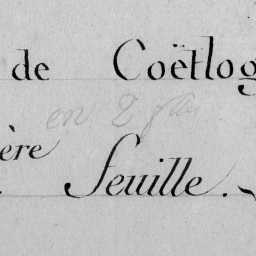 de Coëtlog
en 2
ère
. feuille.